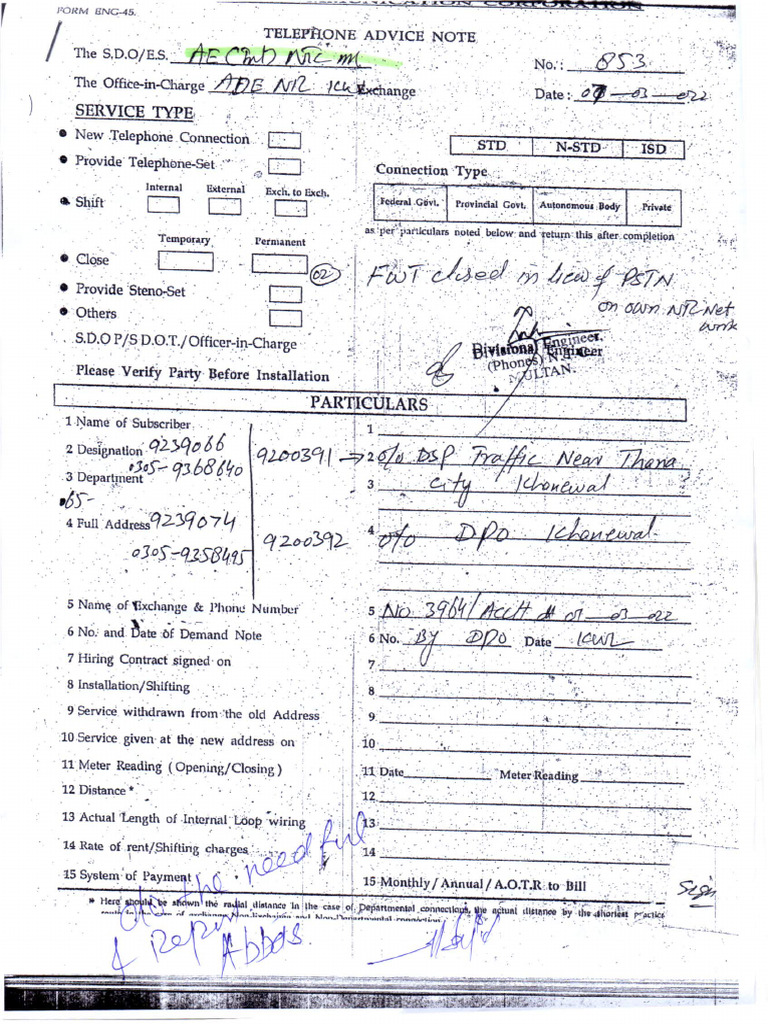 FORM ENG-45.
CORPORATION
TELEPHONE ADVICE NOTE
The S.D.O/E.S. AE NTC
No.: 853
The Office-in-Charge ADE Exchange
Date: 07-03-022
SERVICE TYPE
New Telephone Connection
STD N-STD ISD
Provide Telephone-Set
Connection Type
Internal External Exch. to Exch.
Shift
Federal Govt. Provincial Govt. Autonomous Body Private
as per particulars noted below and return this after completion
Temporary Permanent
Close
02
FWT closed in lieu of PSTN
on own NTC Net
work
Provide Steno-Set
Others
S.D.O P/S D.O.T./Officer-in-Charge
Divisional Engineer
(Phones)
MULTAN.
Please Verify Party Before Installation
PARTICULARS
1 Name of Subscriber
1
2 Designation 9239066
9200391 → 2 o/o DSP Traffic Near Thana
0305-9368640
3 Department
3 City Khanewal
065-
4 Full Address 9239074
9200392 4 o/o DPO Khanewal
0305-9358495
5 Name of Exchange & Phone Number
5 No 3964/Acctt # 07-03-022
6 No. and Date of Demand Note
6 No. By DPO Date KWL
7 Hiring Contract signed on
7
8 Installation/Shifting
8
9 Service withdrawn from the old Address
9
10 Service given at the new address on
10
11 Meter Reading (Opening/Closing)
11 Date Meter Reading
12 Distance *
12
13 Actual Length of Internal Loop wiring
13
14 Rate of rent/Shifting charges
14
15 System of Payment
15 Monthly/Annual/A.O.T.R to Bill
Sign
* Here should be shown the radial distance in the case of Departmental connections, the actual distance by the shortest practice
route in the case of exchange Non-Exchange and Non-Departmental connection
do the needful
& Report
Abbas